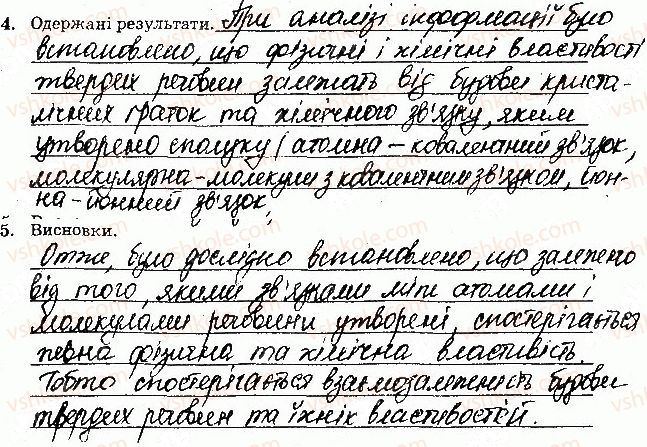 4. Одержані результати. При аналізі інформації було
встановлено, що фізичні і хімічні властивості
твердих речовин залежать від будови криста-
лічних ґраток та хімічного зв'язку, яким
утворено сполуку (атомна – ковалентний зв'язок,
молекулярна – молекули з ковалентним зв'язком, йон-
на – йонний зв'язок.
5. Висновки.
Отже, було дослідно встановлено, що залежно
від того, якими зв'язками між атомами і
молекулами речовини утворені, спостерігається
певна фізична та хімічна властивість.
Тобто спостерігається взаємозалежність будови
твердих речовин та їхніх властивостей.